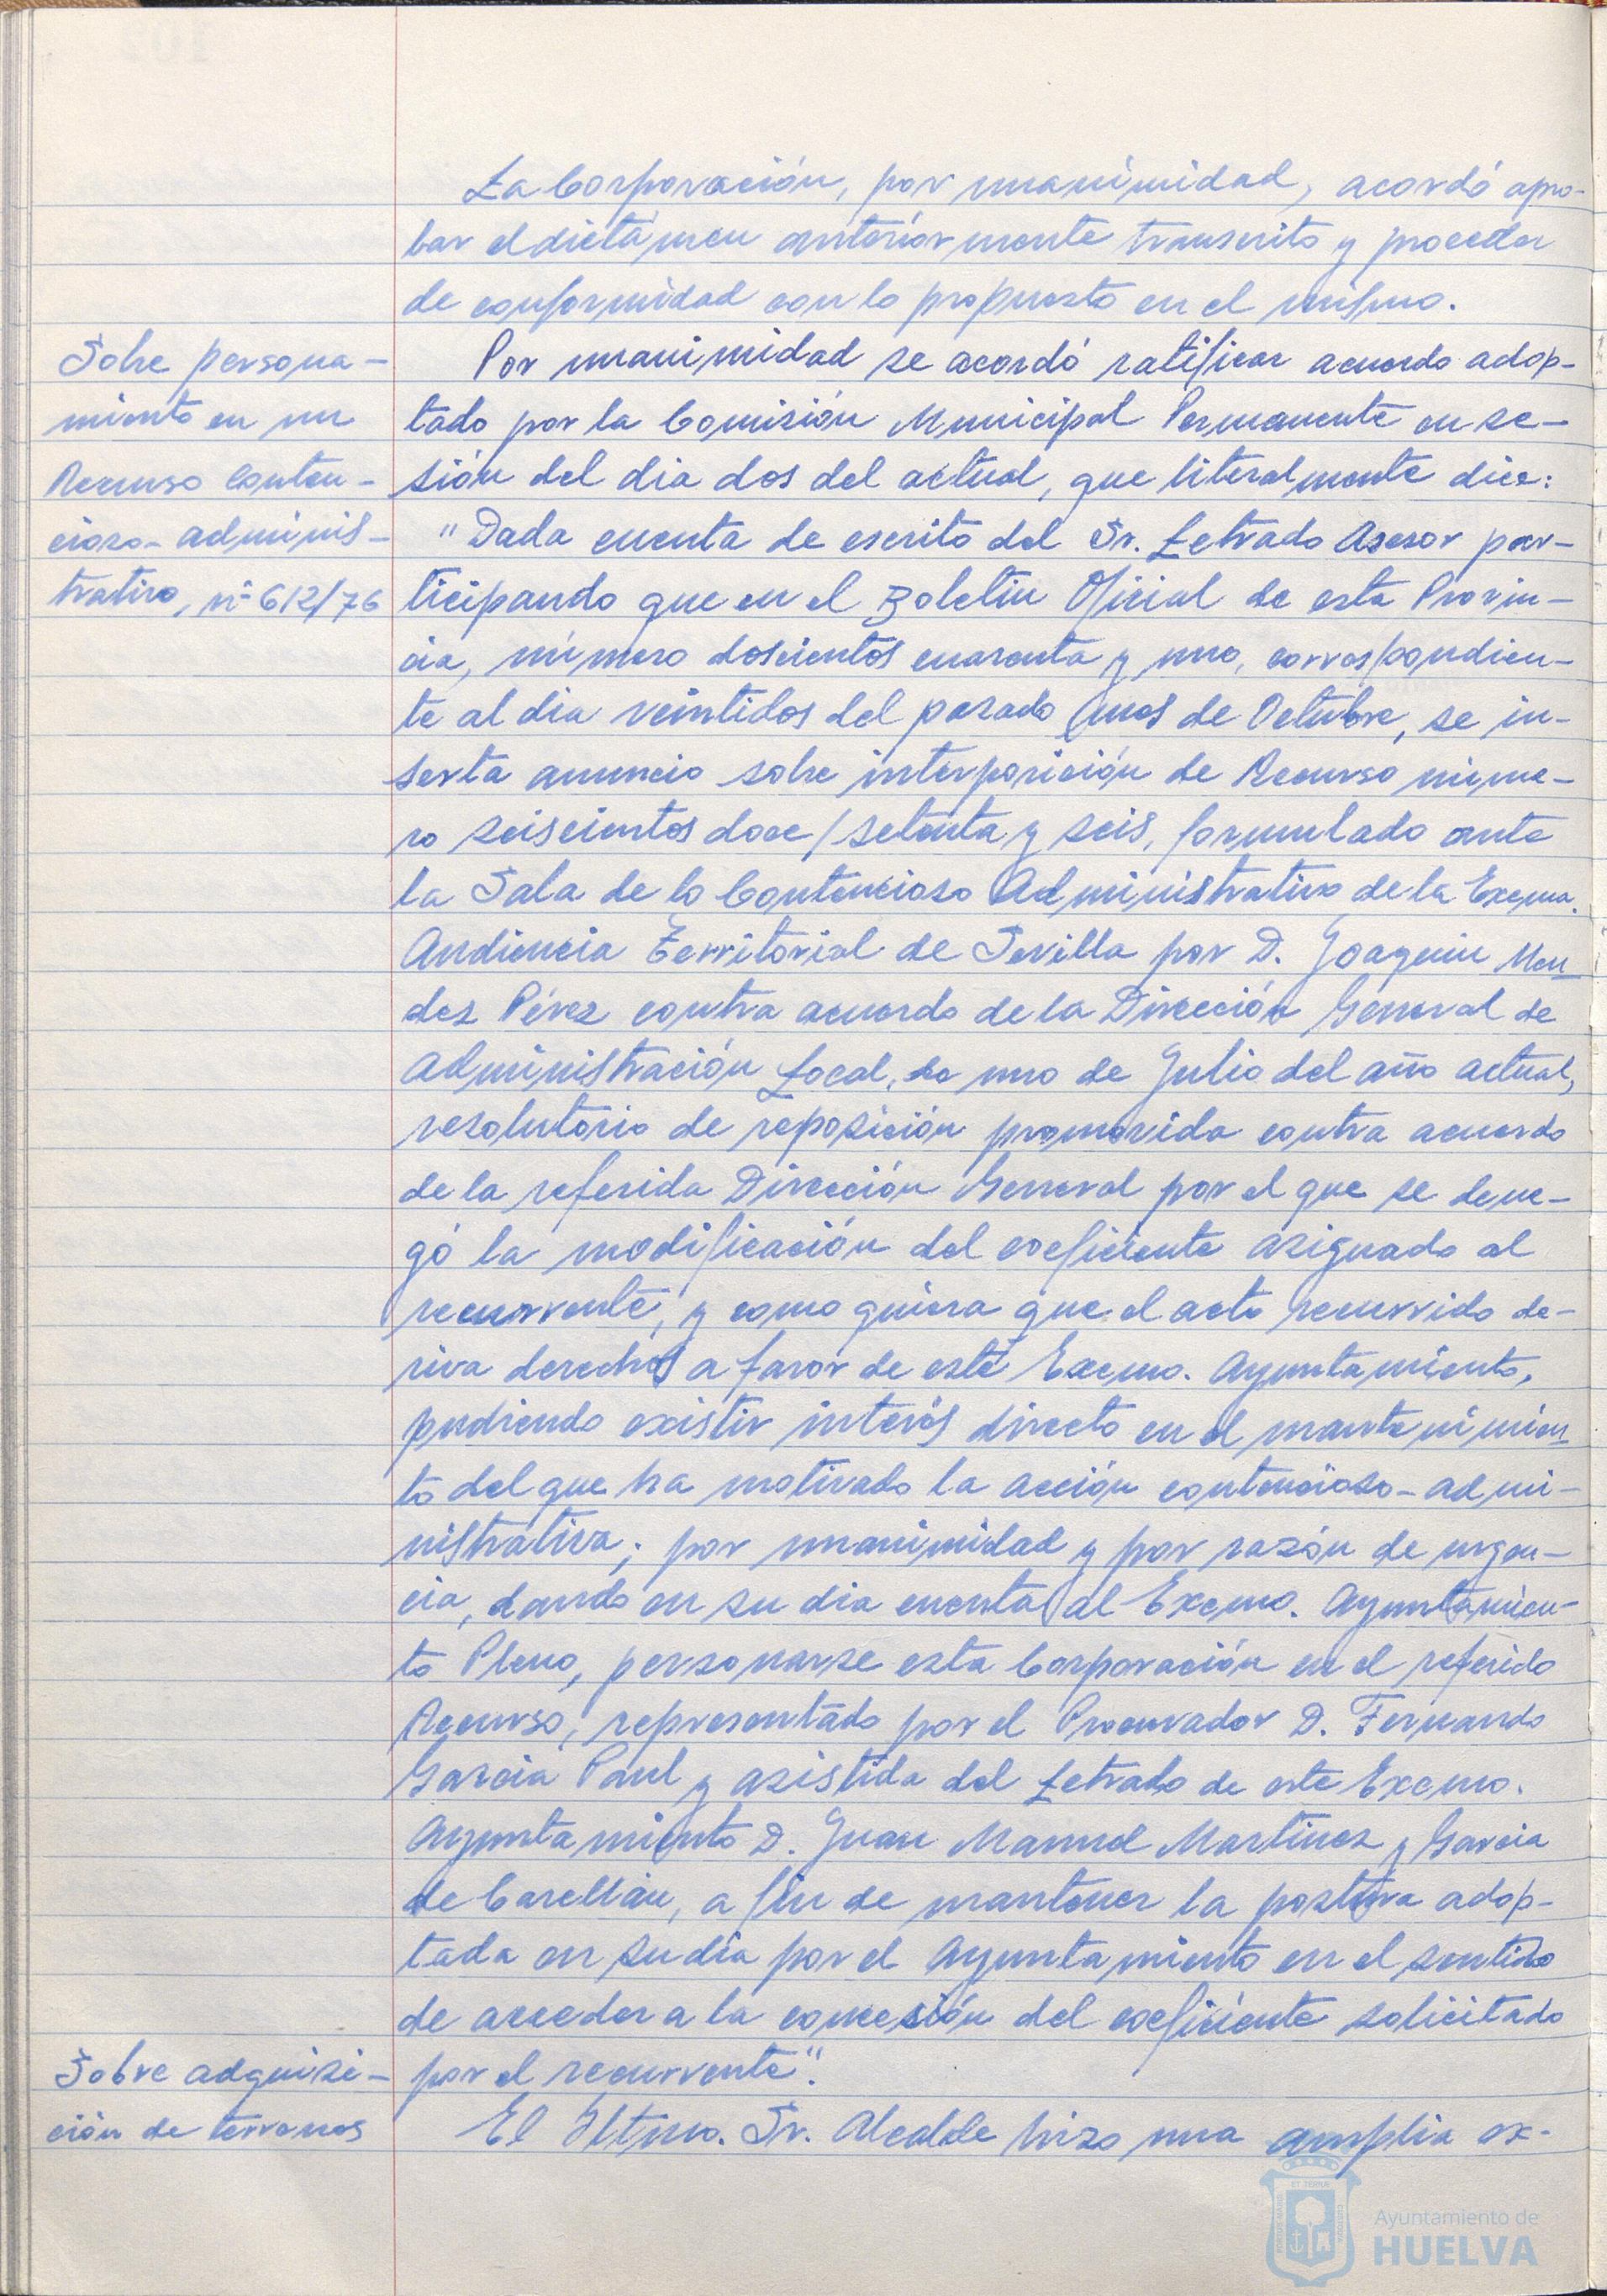 La Corporación, por unanimidad, acordó apro-
bar el dictámen anteriormente transcrito y proceder
de conformidad con lo propuesto en el mismo.
Sobre persona-
miento en un
Recurso Conten-
cioso-adminis-
trativo, nº 612/76
Por unanimidad se acordó ratificar acuerdo adop-
tado por la Comisión Municipal Permanente en se-
sión del dia dos del actual, que literalmente dice:
"Dada cuenta de escrito del Sr. Letrado Asesor par-
ticipando que en el Boletin Oficial de esta Provin-
cia, número doscientos cuarenta y uno, correspondien-
te al dia veintidos del pasado mes de Octubre, se in-
serta anuncio sobre interposición de Recurso núme-
ro seiscientos doce/setenta y seis, formulado ante
la Sala de lo Contencioso Administrativo de la Excma.
Audiencia Territorial de Sevilla por D. Joaquin Men
dez Pérez contra acuerdo de la Dirección General de
Administración Local, de uno de Julio del año actual,
resolutorio de reposición promovida contra acuerdo
de la referida Dirección General por el que se dene-
gó la modificación del coeficiente asignado al
recurrente, y como quiera que el acto recurrido de-
riva derechos a favor de este Excmo. Ayuntamiento,
pudiendo existir interés directo en el mantenimien
to del que ha motivado la acción contencioso-admi-
nistrativa; por unanimidad y por razón de urgen-
cia, dando en su dia cuenta al Excmo. Ayuntamien-
to Pleno, personarse esta Corporación en el referido
Recurso, representado por el Procurador D. Fernando
Garcia Paul y asistida del Letrado de este Excmo.
Ayuntamiento D. Juan Manuel Martinez y Garcia
de Carellán, a fin de mantener la postura adop-
tada en su dia por el Ayuntamiento en el sentido
de acceder a la concesión del coeficiente solicitado
por el recurrente".
Sobre adquisi-
ción de terrenos
El Iltmo. Sr. Alcalde hizo una amplia ex-
Ayuntamiento de
HUELVA